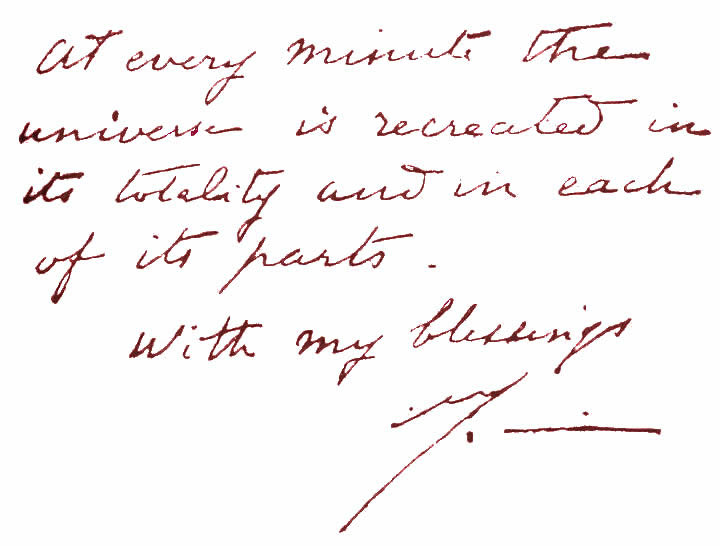 At every minute the
universe is recreated in
its totality and in each
of its parts.
With my blessings